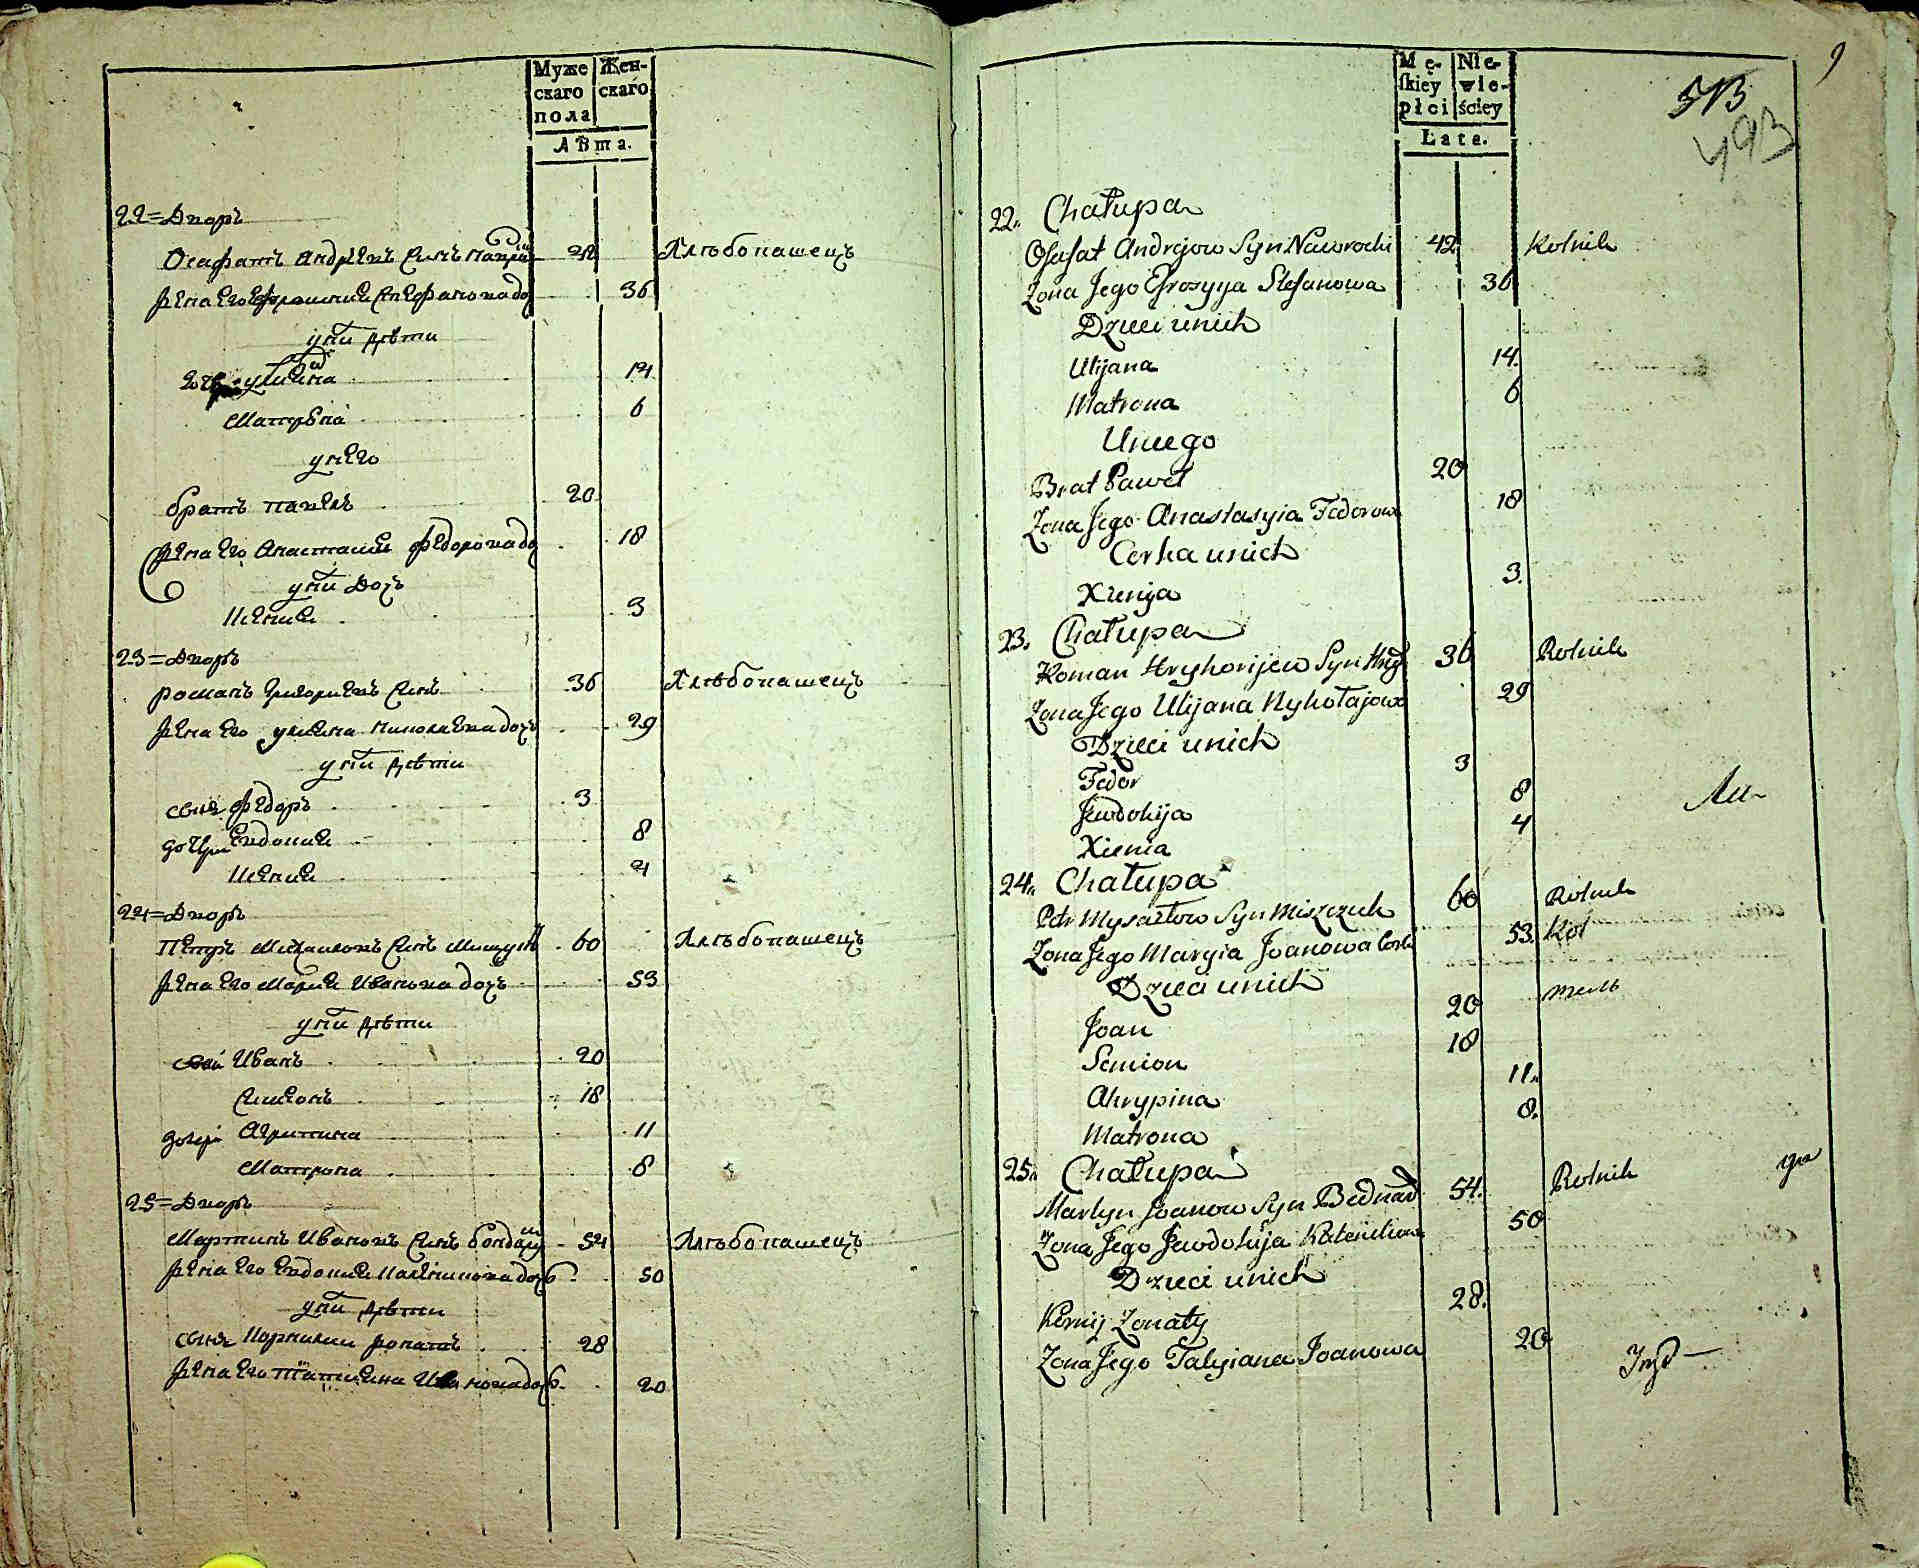 Муже
скаго
пола
Жен-
скаго
Лѣта.
22=Дворъ
Осафатъ Андрѣевъ синъ 42 Хлѣбопашецъ
жена его Ефросиния Стефанова до 36
у ни дѣти
дочери улияна 14
Матрона 6
у него
братъ павелъ 20
жена его Анастасия федорова до 18
у ни дочь
Ксения 3
23=Дворъ
романъ Григориевъ синъ 36 Хлѣбопашецъ
жена его улияна николаева дочь 29
у ни дѣти
синъ федоръ 3
дочери Евдокия 8
Ксения 4
24=Дворъ
Петръ Михаиловъ синъ Мищукъ 60 Хлѣбопашецъ
жена его Мария Иванова дочь 53
у ни дѣти
Иванъ 20
Симеонъ 18
дочери Агрипина 11
Матрона 8
25=Дворъ
Мартинъ Ивановъ синъ бондарь 54 Хлѣбопашецъ
жена его Евдокия дочь 50
у ни дѣти
синъ Корнилий жонатъ 28
жена его татияна Иванова дочь 20
9
Mę-
skiey
płci
Nie-
wie-
ściey
Lata.
513
493
22. Chałupa
Ofafat Andrejow Syn Nawrocki 42 Rolnik
Zona Jego Efrozyja Stefanowa 36
Dzieci unich
Ulijana 14.
Matrona 6
Uniego
Brat Paweł 20
Zona Jego Anastasyia Fedorowa 18
Corka unich
Xienija 3.
23. Chałupa
Roman Hryhorijew Syn 36 Rolnik
Zona Jego Ulijana Nykołajowa 29
Dzieci unich
Fedor 3
Jewdokija 8
Xienia 4
24. Chałupa
Petr Mysaiłow Syn Miszczuk 60 Rolnik
Zona Jego Maryia Joanowa Cork 53. Rol
Dzieci unich
Joan 20
Semion 18
Ahrypina 11.
Matrona 8.
25. Chałupa
Martyn Joanow Syn Bednar 54. Rolnik
Zona Jego Jewdokija 50
Dzieci unich
Kornij Zonaty 28.
Zona Jego Tatyiana Joanowa 20